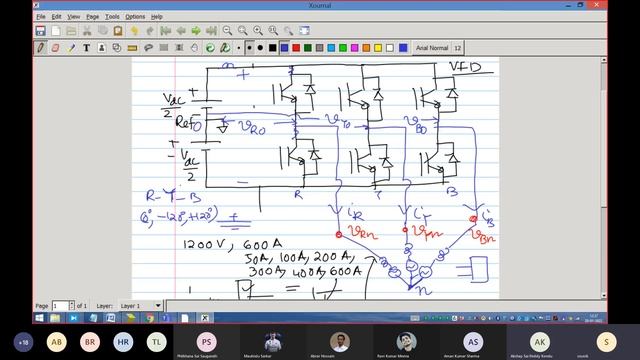 Xournal
File Edit View Journal Tools Options Help
Arial Normal 12
VFD
+
+
Vdc
2
Ref 0
vRO vYO vBO
+
- Vdc
2
-
R Y B
R-Y-B
(0°, -120°, +120°)
+
iR iY iB
vRn vYn vBn
1200V, 600A
50A, 100A, 200A,
300A, 400A, 600A
n
=
Page 1 of 1 Layer: Layer 1
+18 AB BR HR TL PS A S
Pribhana Sai Saugandh Maulindu Sarkar Abrar Hossain Ravi Kumar Meena Aman Kumar Sharma Akshay Sai Reddy Kondu